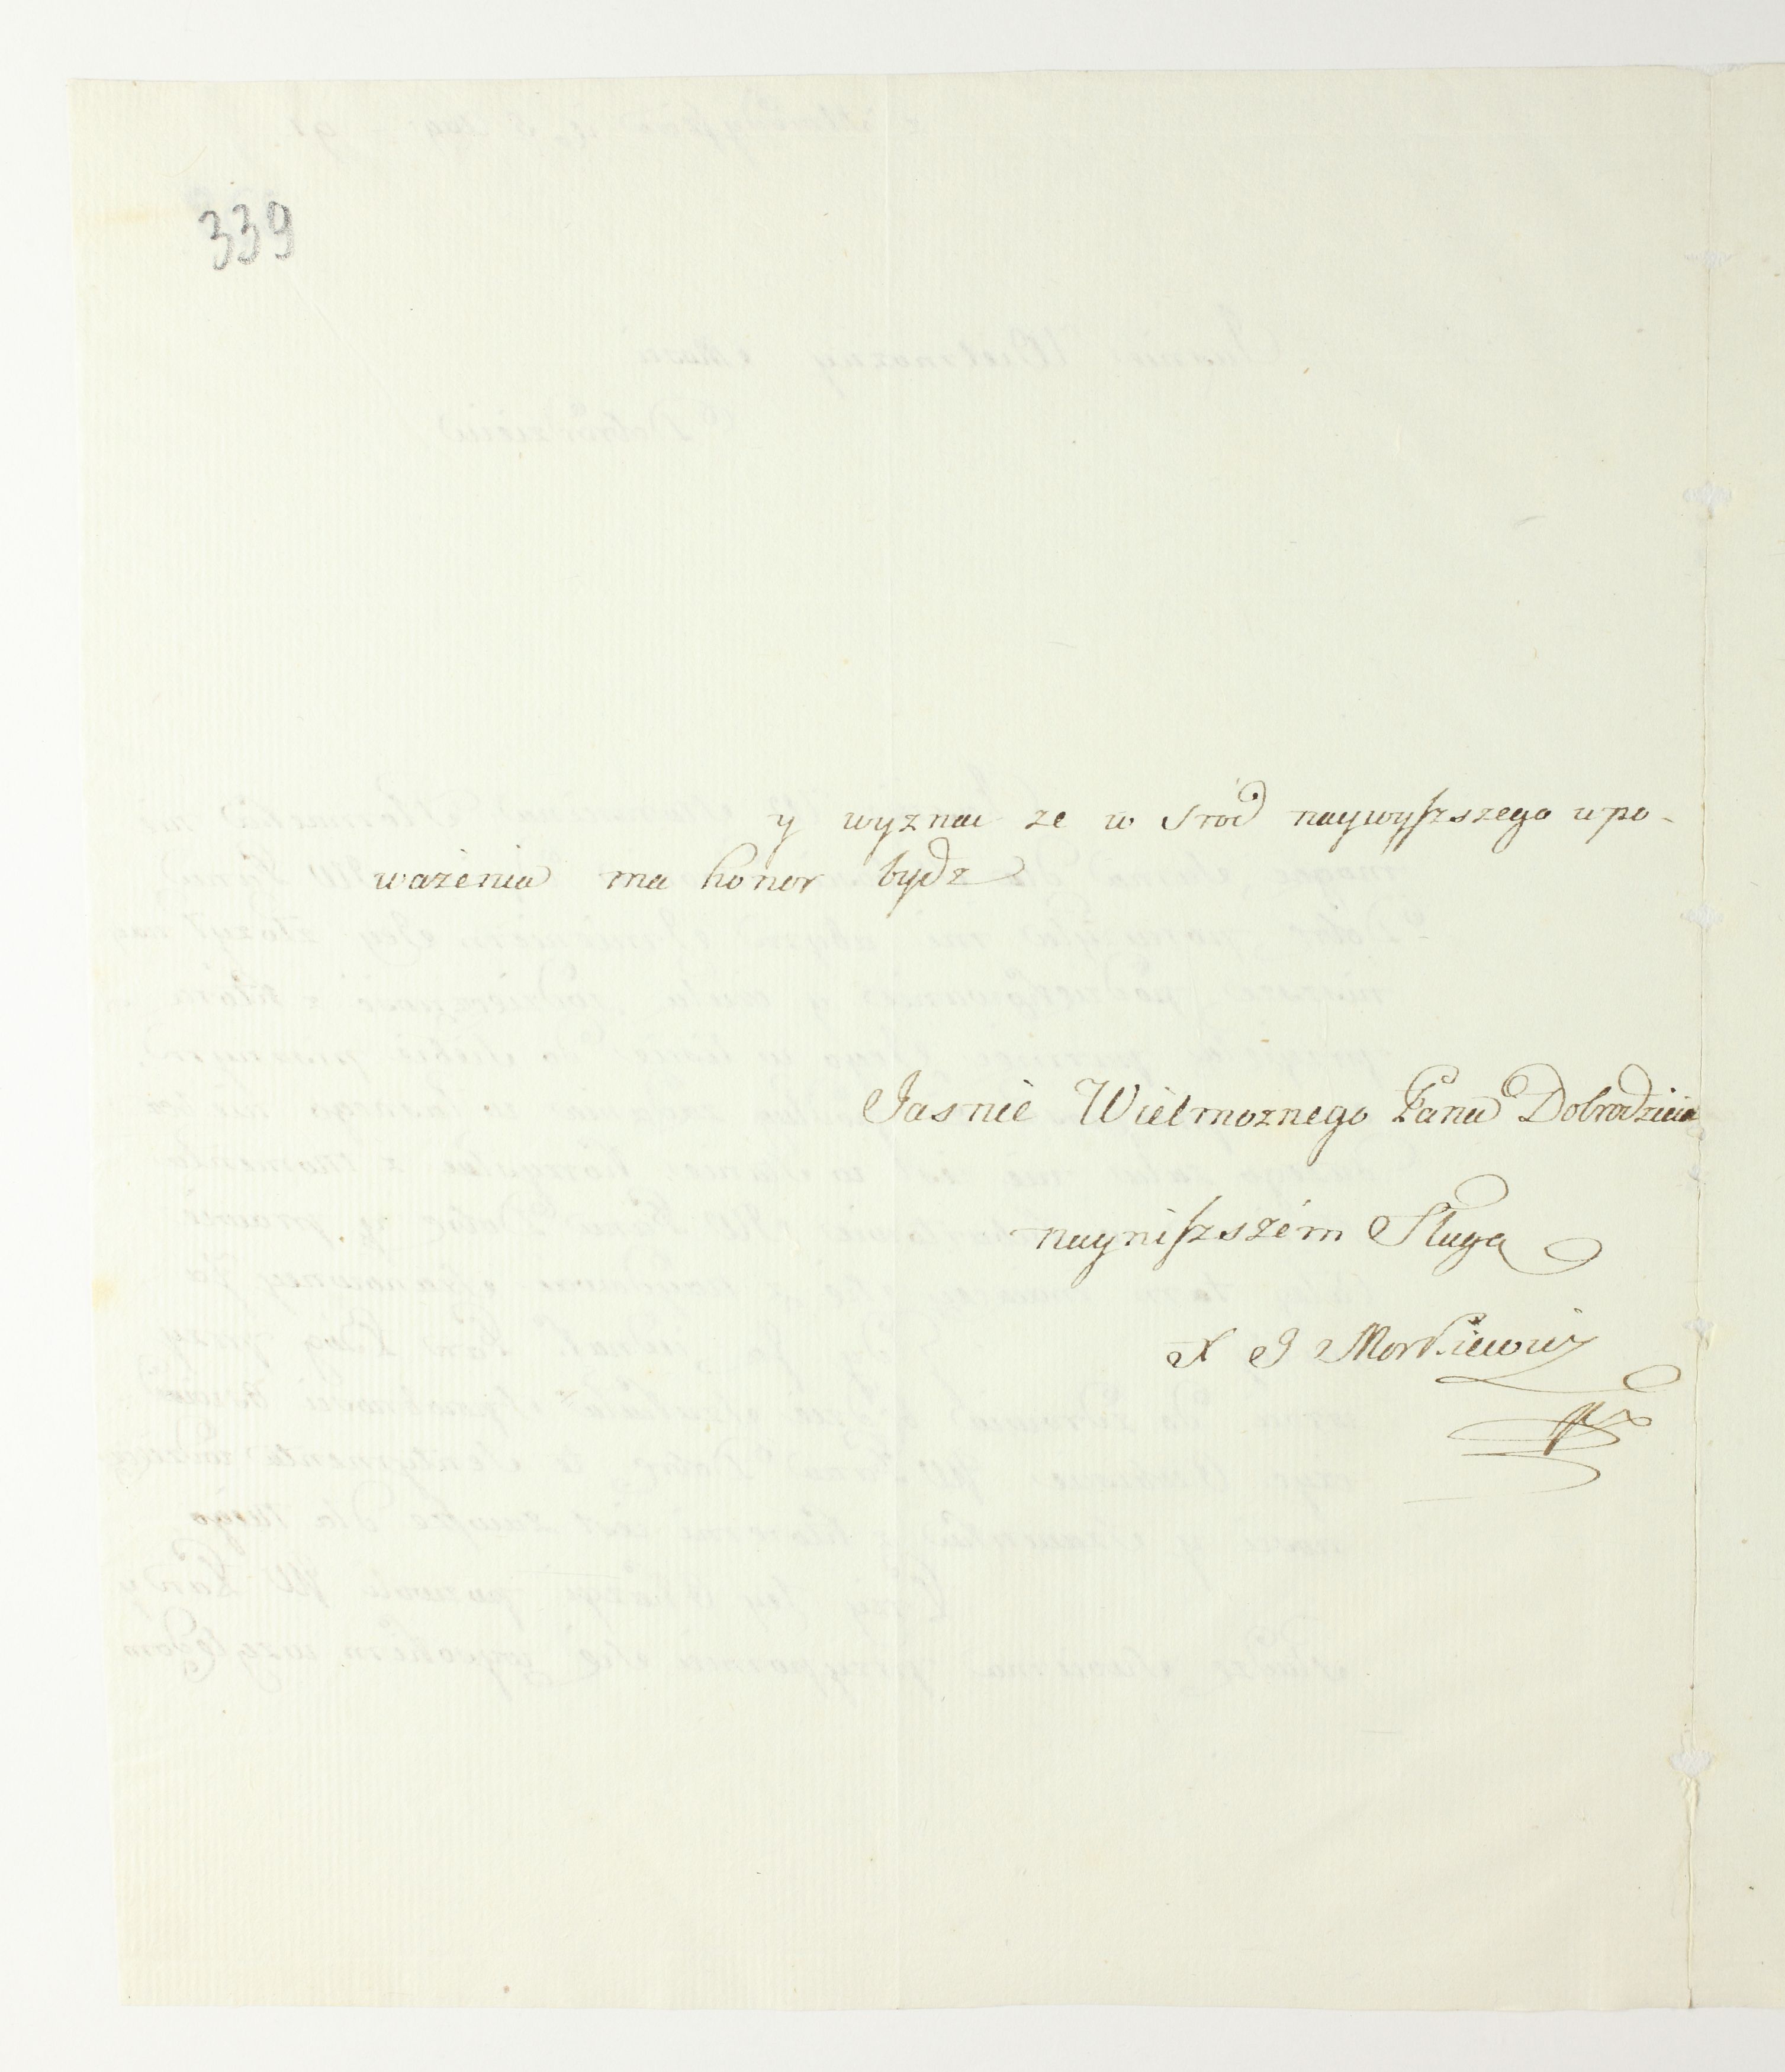 339
y wyznac ze w sród naywyższego upo-
ważenia ma honor bydz
Jasnie Wielmoznego Pana Dobrodzieia
nayniższém Sługą
X J Morkiewicz